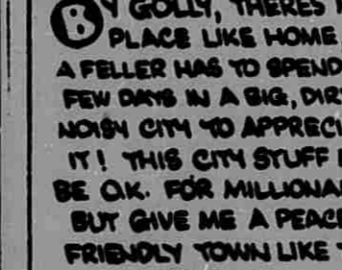 BY GOLLY, THERE'S
PLACE LIKE HOME
A FELLER HAS TO SPEND
FEW DAYS IN A BIG, DIR
NOISY CITY TO APPRECI
IT! THIS CITY STUFF
BE O.K. FOR MILLIONA
BUT GIVE ME A PEACE
FRIENDLY TOWN LIKE